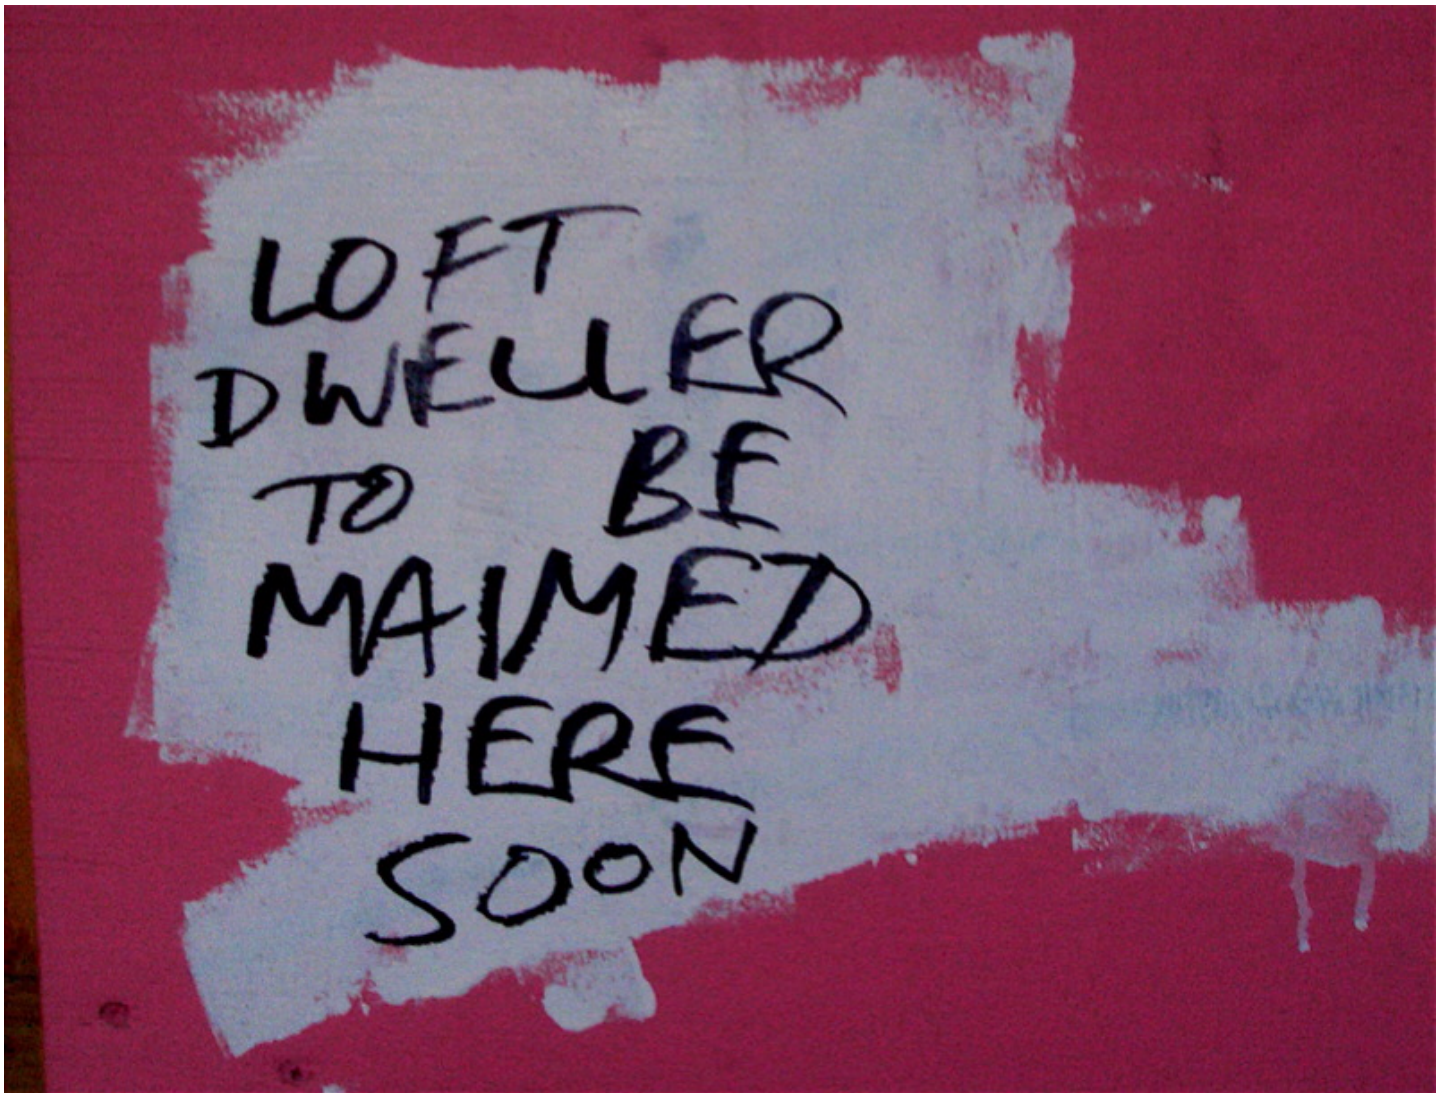 LOFT
DWELLER
TO BE
MAIMED
HERE
SOON